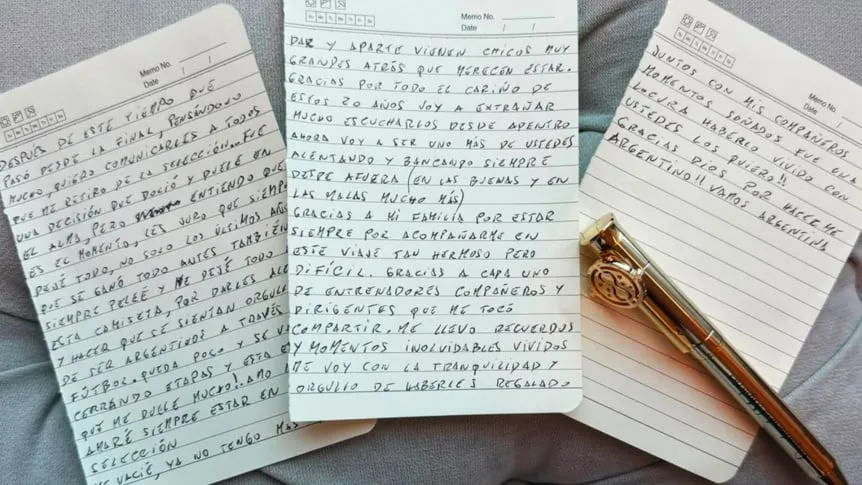 Memo No.
Date / /
DESPUÉS DE ESTE TIEMPO QUE
PASÓ DESDE LA FINAL, PENSÁNDOLO
MUCHO, QUIERO COMUNICARLES A TODOS
QUE ME RETIRO DE LA SELECCIÓN... FUE
UNA DECISIÓN QUE DOLIÓ Y DUELE EN
EL ALMA, PERO ENTIENDO QUE
ES EL MOMENTO, LES JURO QUE SIEMPRE
DEJÉ TODO, NO SOLO LOS ÚLTIMOS AÑOS
QUE SE GANÓ TODO ANTES TAMBIÉN
SIEMPRE PELEÉ Y ME DEJÉ TODO
ESTA CAMISETA, POR DARLES ALE
Y HACER QUE SE SIENTAN ORGULL
DE SER ARGENTINOS A TRAVÉS
FÚTBOL. QUEDA POCO Y SE VA
CERRANDO ETAPAS Y ESTA E
QUE ME DUELE MUCHO!! AMO
AMARÉ SIEMPRE ESTAR EN
SELECCIÓN
ME VACIÉ, YA NO TENGO MÁS
Memo No.
Date / /
DAR Y APARTE VIENEN CHICOS MUY
GRANDES ATRÁS QUE MERECEN ESTAR.
GRACIAS POR TODO EL CARIÑO DE
ESTOS 20 AÑOS VOY A EXTRAÑAR
MUCHO ESCUCHARLOS DESDE ADENTRO
AHORA VOY A SER UNO MÁS DE USTEDES
ALENTANDO Y BANCANDO SIEMPRE
DESDE AFUERA (EN LAS BUENAS Y EN
LAS MALAS MUCHO MÁS)
GRACIAS A MI FAMILIA POR ESTAR
SIEMPRE POR ACOMPAÑARME EN
ESTE VIAJE TAN HERMOSO PERO
DIFÍCIL. GRACIAS A CADA UNO
DE ENTRENADORES COMPAÑEROS Y
DIRIGENTES QUE ME TOCÓ
COMPARTIR. ME LLEVO RECUERDOS
Y MOMENTOS INOLVIDABLES VIVIDOS
ME VOY CON LA TRANQUILIDAD Y
ORGULLO DE HABERLES REGALADO
Memo No.
Date / /
JUNTOS CON MIS COMPAÑEROS
MOMENTOS SOÑADOS FUE UNA
LOCURA HABERLO VIVIDO CON
USTEDES LOS QUIERO!!
GRACIAS DIOS POR HACERME
ARGENTINO!! VAMOS ARGENTINA